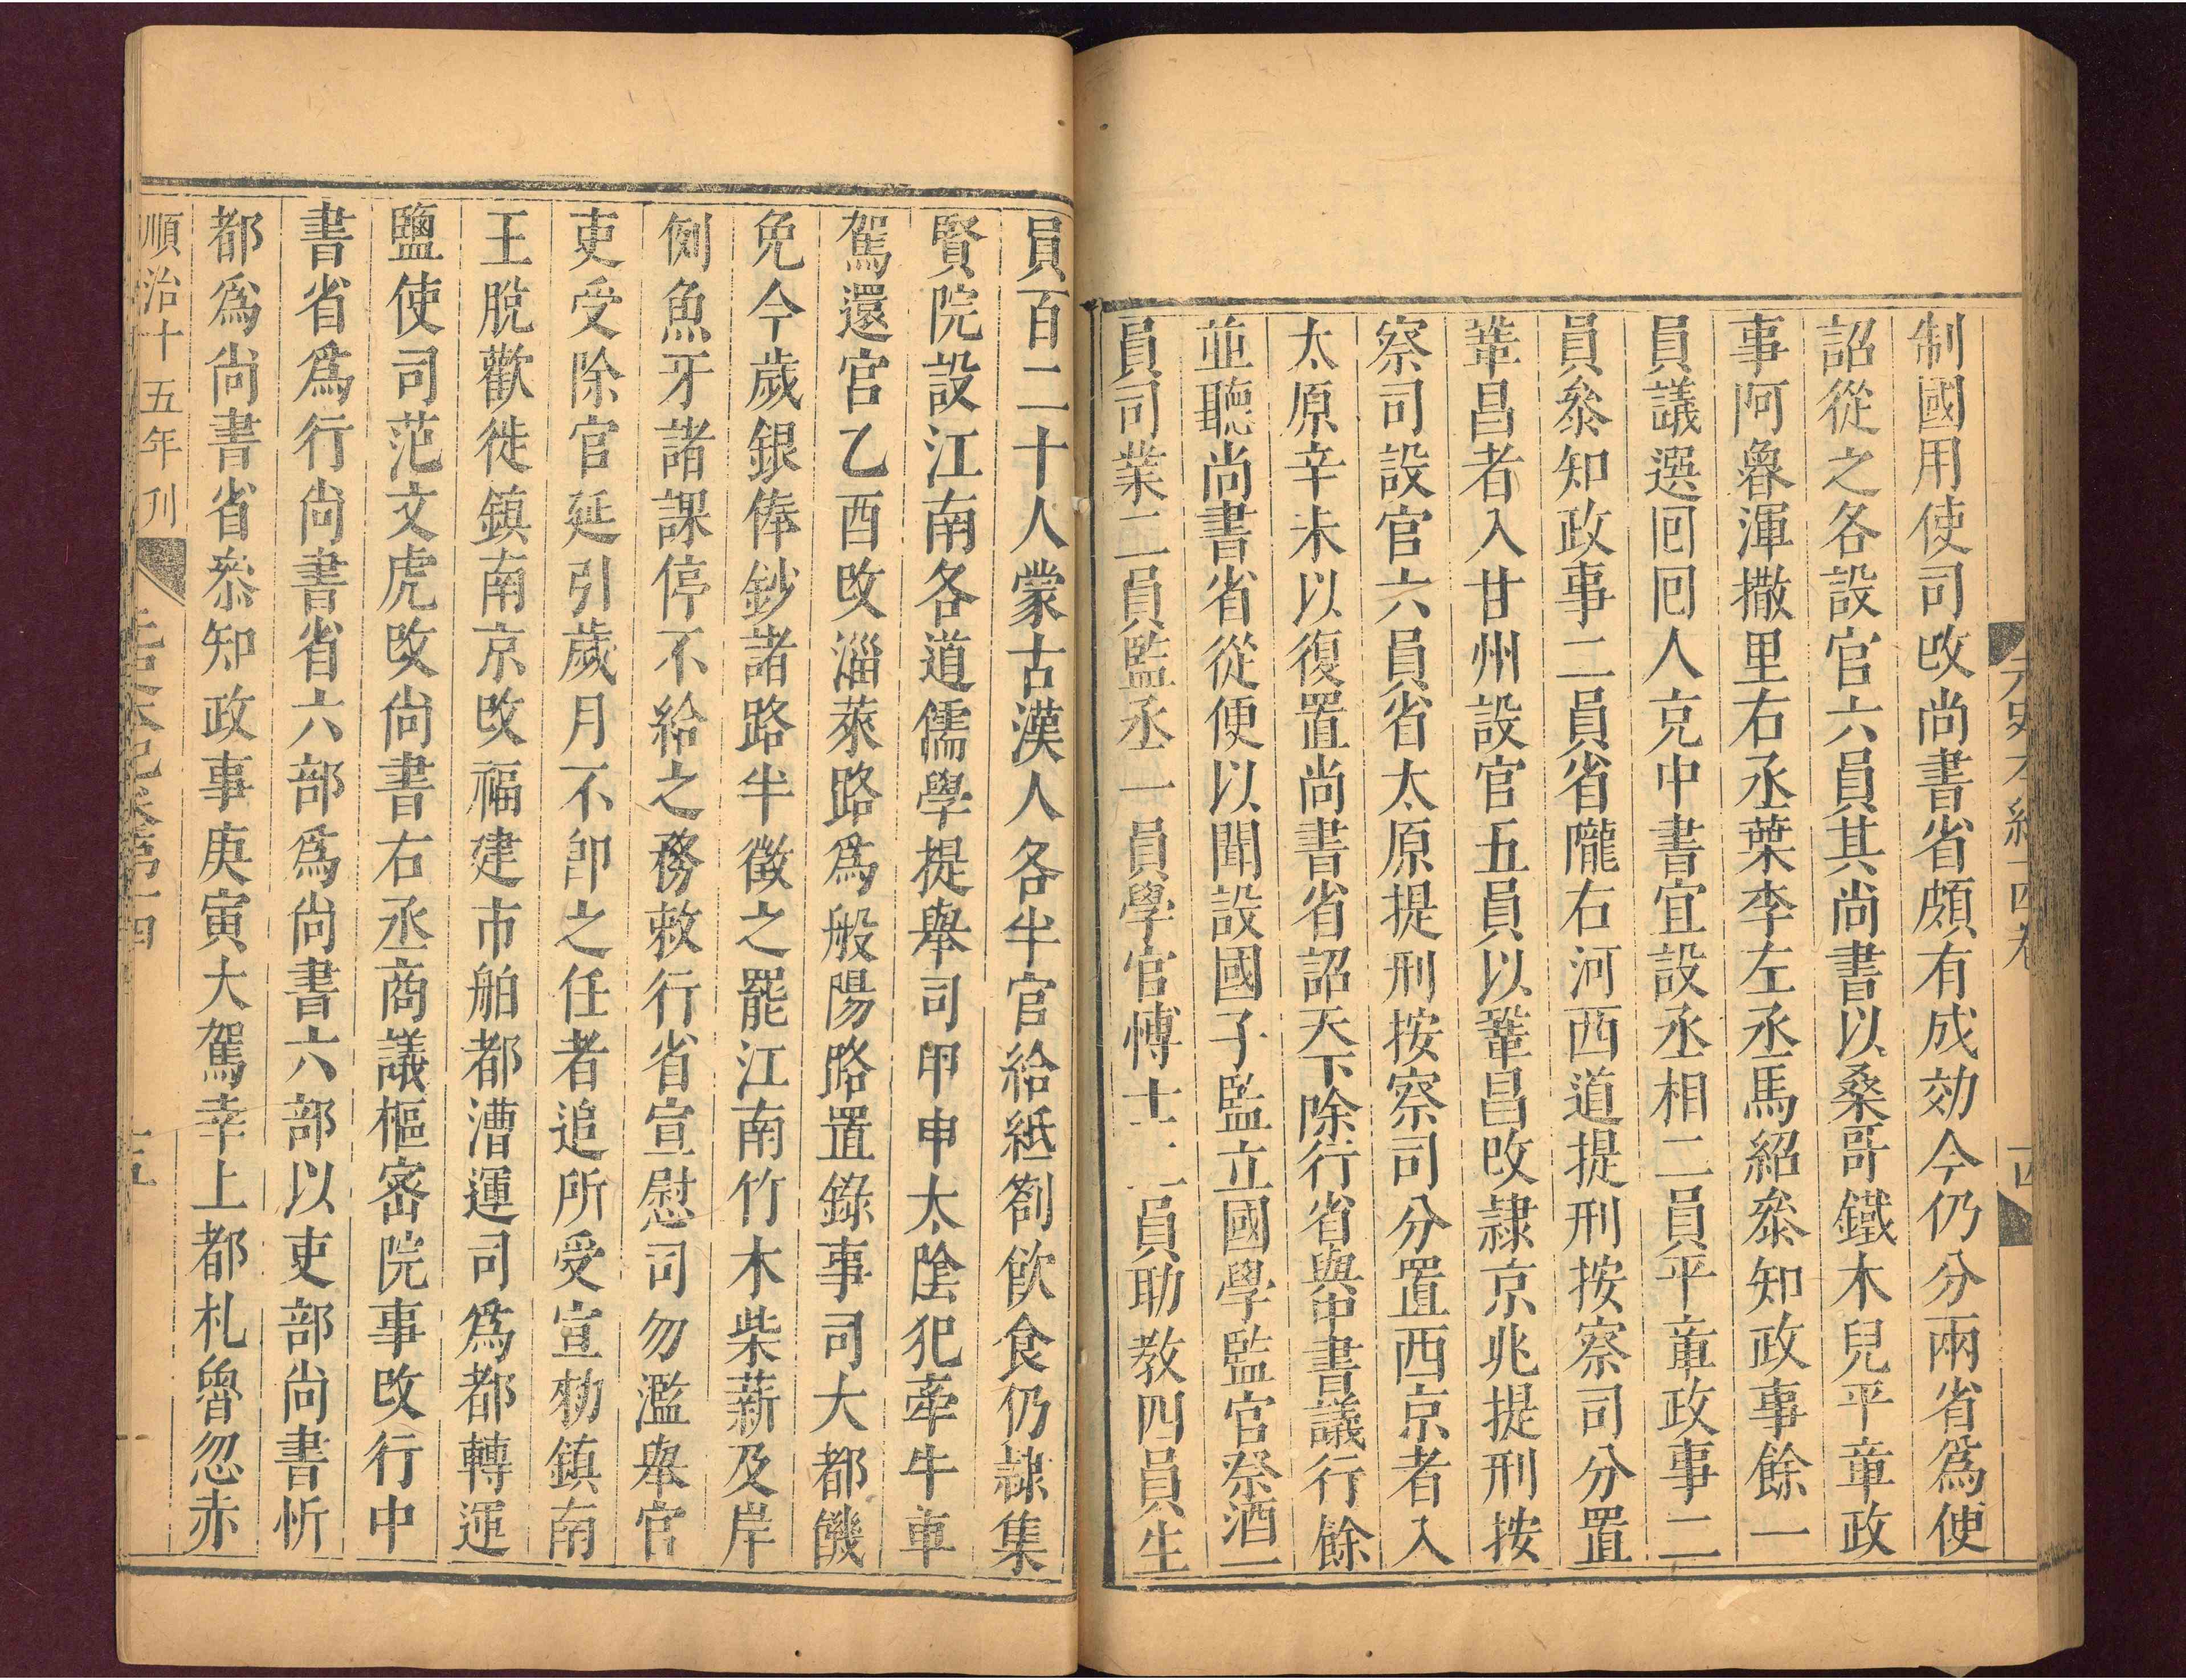 元史本紀十四卷 十四
制國用使司改尚書省頗有成効今仍分兩省爲使
詔從之各設官六員其尚書以桑哥鐵木兒平章政
事阿魯渾撒里右丞葉李左丞馬紹叅知政事餘一
員議選囘囘人克中書宜設丞相二員平章政事二
員叅知政事二員省隴右河西道提刑按察司分置
鞏昌者入甘州設官五員以鞏昌改隷京兆提刑按
察司設官六員省太原提刑按察司分置西京者入
太原辛未以復置尚書省詔天下除行省與中書議行餘
並聽尚書省從便以聞設國子監立國學監官祭酒一
員司業二員監丞一員學官愽士二員助教四員生
員百二十人蒙古漢人各半官給紙劄飲食仍隷集
賢院設江南各道儒學提舉司甲申太陰犯牽牛車
駕還宫乙酉改淄萊路爲般陽路置錄事司大都饑
免今歲銀俸鈔諸路半徵之罷江南竹木柴薪及岸
例魚牙諸課停不給之務敕行省宣慰司勿濫舉官
吏受除官延引歲月不卽之任者追所受宣勑鎮南
王脫歡徙鎮南京改福建市舶都漕運司爲都轉運
鹽使司范文虎改尚書右丞商議樞宻院事改行中
書省爲行尚書省六部爲尚書六部以吏部尚書忻
都爲尚書省叅知政事庚寅大駕幸上都札魯忽赤
順治十五年刊 元史本紀卷第十四 十五